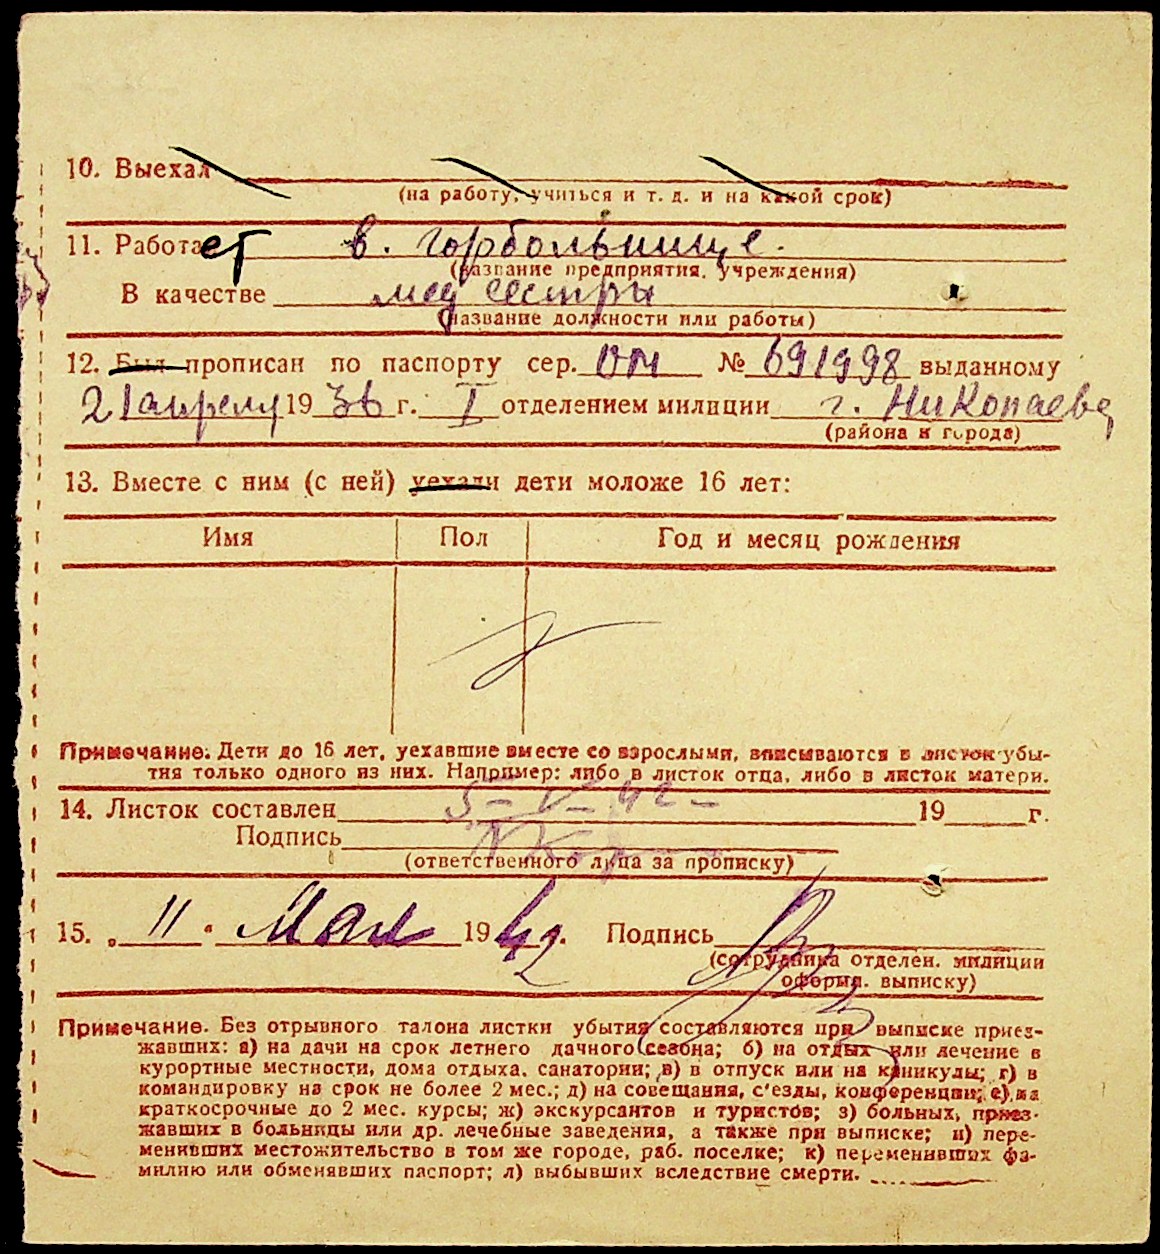 10. Выехал
(на работу, учиться и т. д. и на какой срок)
11. Работает в. горбольнице.
(название предприятия, учреждения)
В качестве мед сестры
(название должности или работы)
12. Был прописан по паспорту сер. ОМ № 691998 выданному
21 апреля 1936 г. I отделением милиции г. Николаева
(района и города)
13. Вместе с ним (с ней) уехали дети моложе 16 лет:
Имя Пол Год и месяц рождения
Примечание. Дети до 16 лет, уехавшие вместе со взрослыми, вписываются в листок убы-
тия только одного из них. Например: либо в листок отца, либо в листок матери.
14. Листок составлен 5-V-42- 19 г.
Подпись
(ответственного лица за прописку)
15. „ 11 " Мая 1942. Подпись
(сотрудника отделен. милиции
оформл. выписку)
Примечание. Без отрывного талона листки убытия составляются при выписке приез-
жавших: а) на дачи на срок летнего дачного сезона; б) на отдых или лечение в
курортные местности, дома отдыха, санатории; в) в отпуск или на каникулы; г) в
командировку на срок не более 2 мес.; д) на совещания, с'езды, конференции; е) на
краткосрочные до 2 мес. курсы; ж) экскурсантов и туристов; з) больных, приез-
жавших в больницы или др. лечебные заведения, а также при выписке; и) пере-
менивших местожительство в том же городе, раб. поселке; к) переменивших фа-
милию или обменявших паспорт; л) выбывших вследствие смерти.